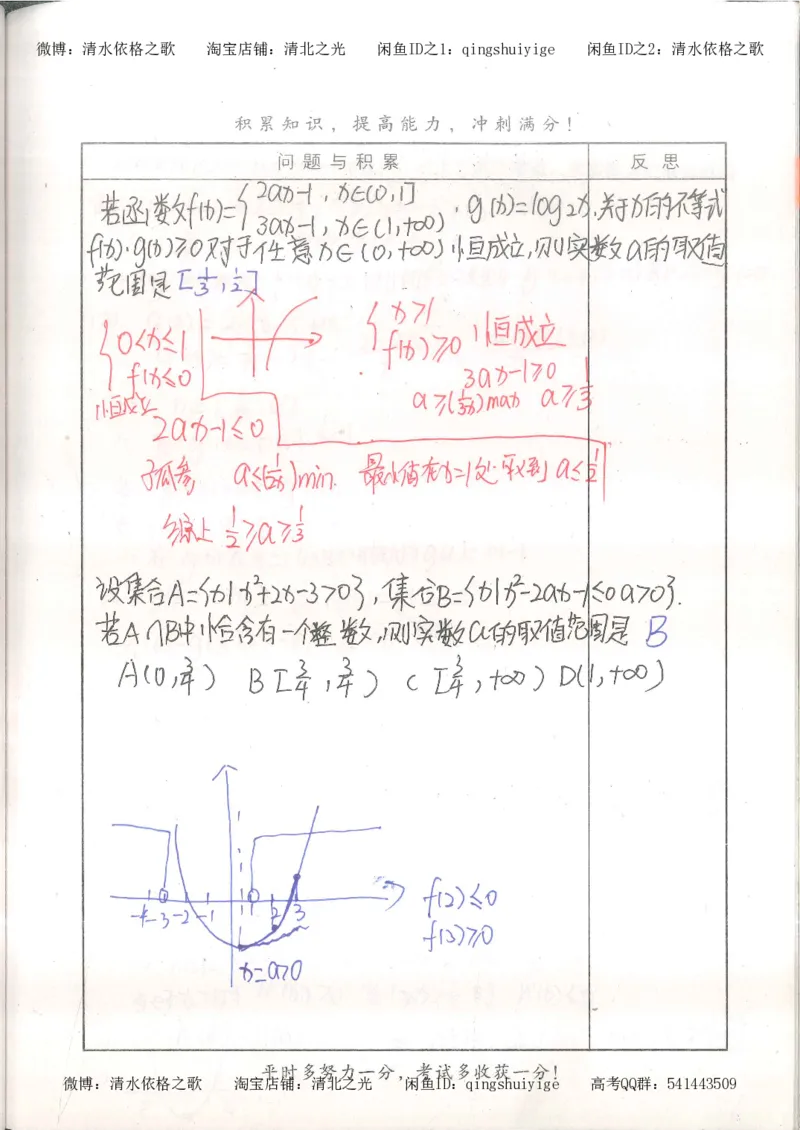 微博：清水依格之歌 淘宝店铺：清北之光 闲鱼ID之1：qingshuiyige 闲鱼ID之2：清水依格之歌
积累知识，提高能力，冲刺满分！
问题与积累 反思
若函数f(x)={2ax-1，x∈(0,1] 3ax-1，x∈(1,+∞)．g(x)=log2x,关于x的不等式
f(x)·g(x)≥0对于任意x∈(0,+∞)恒成立,则实数a的取值
范围是[1/3,1/2]
{0<x≤1 f(x)≤0
恒成立
{x>1 f(x)≥0 恒成立
3ax-1≥0
a≥(1/3x)max a≥1/3
2ax-1≤0
孤参 a≤(1/2x)min. 最小值在x=1处取到 a≤1/2
综上 1/2≥a≥1/3
设集合A={x|x²+2x-3>0},集合B={x|x²-2ax-1≤0 a>0}.
若A∩B中恰含有一个整数,则实数a的取值范围是 B
A(0,3/4) B[3/4,3/4) C[3/4,+∞) D(1,+∞)
-4 -3 -2 -1 2 3
f(2)≤0
f(3)≥0
x=a>0
平时多努力一分，考试多收获一分！
微博：清水依格之歌 淘宝店铺：清北之光 闲鱼ID：qingshuiyige 高考QQ群：541443509